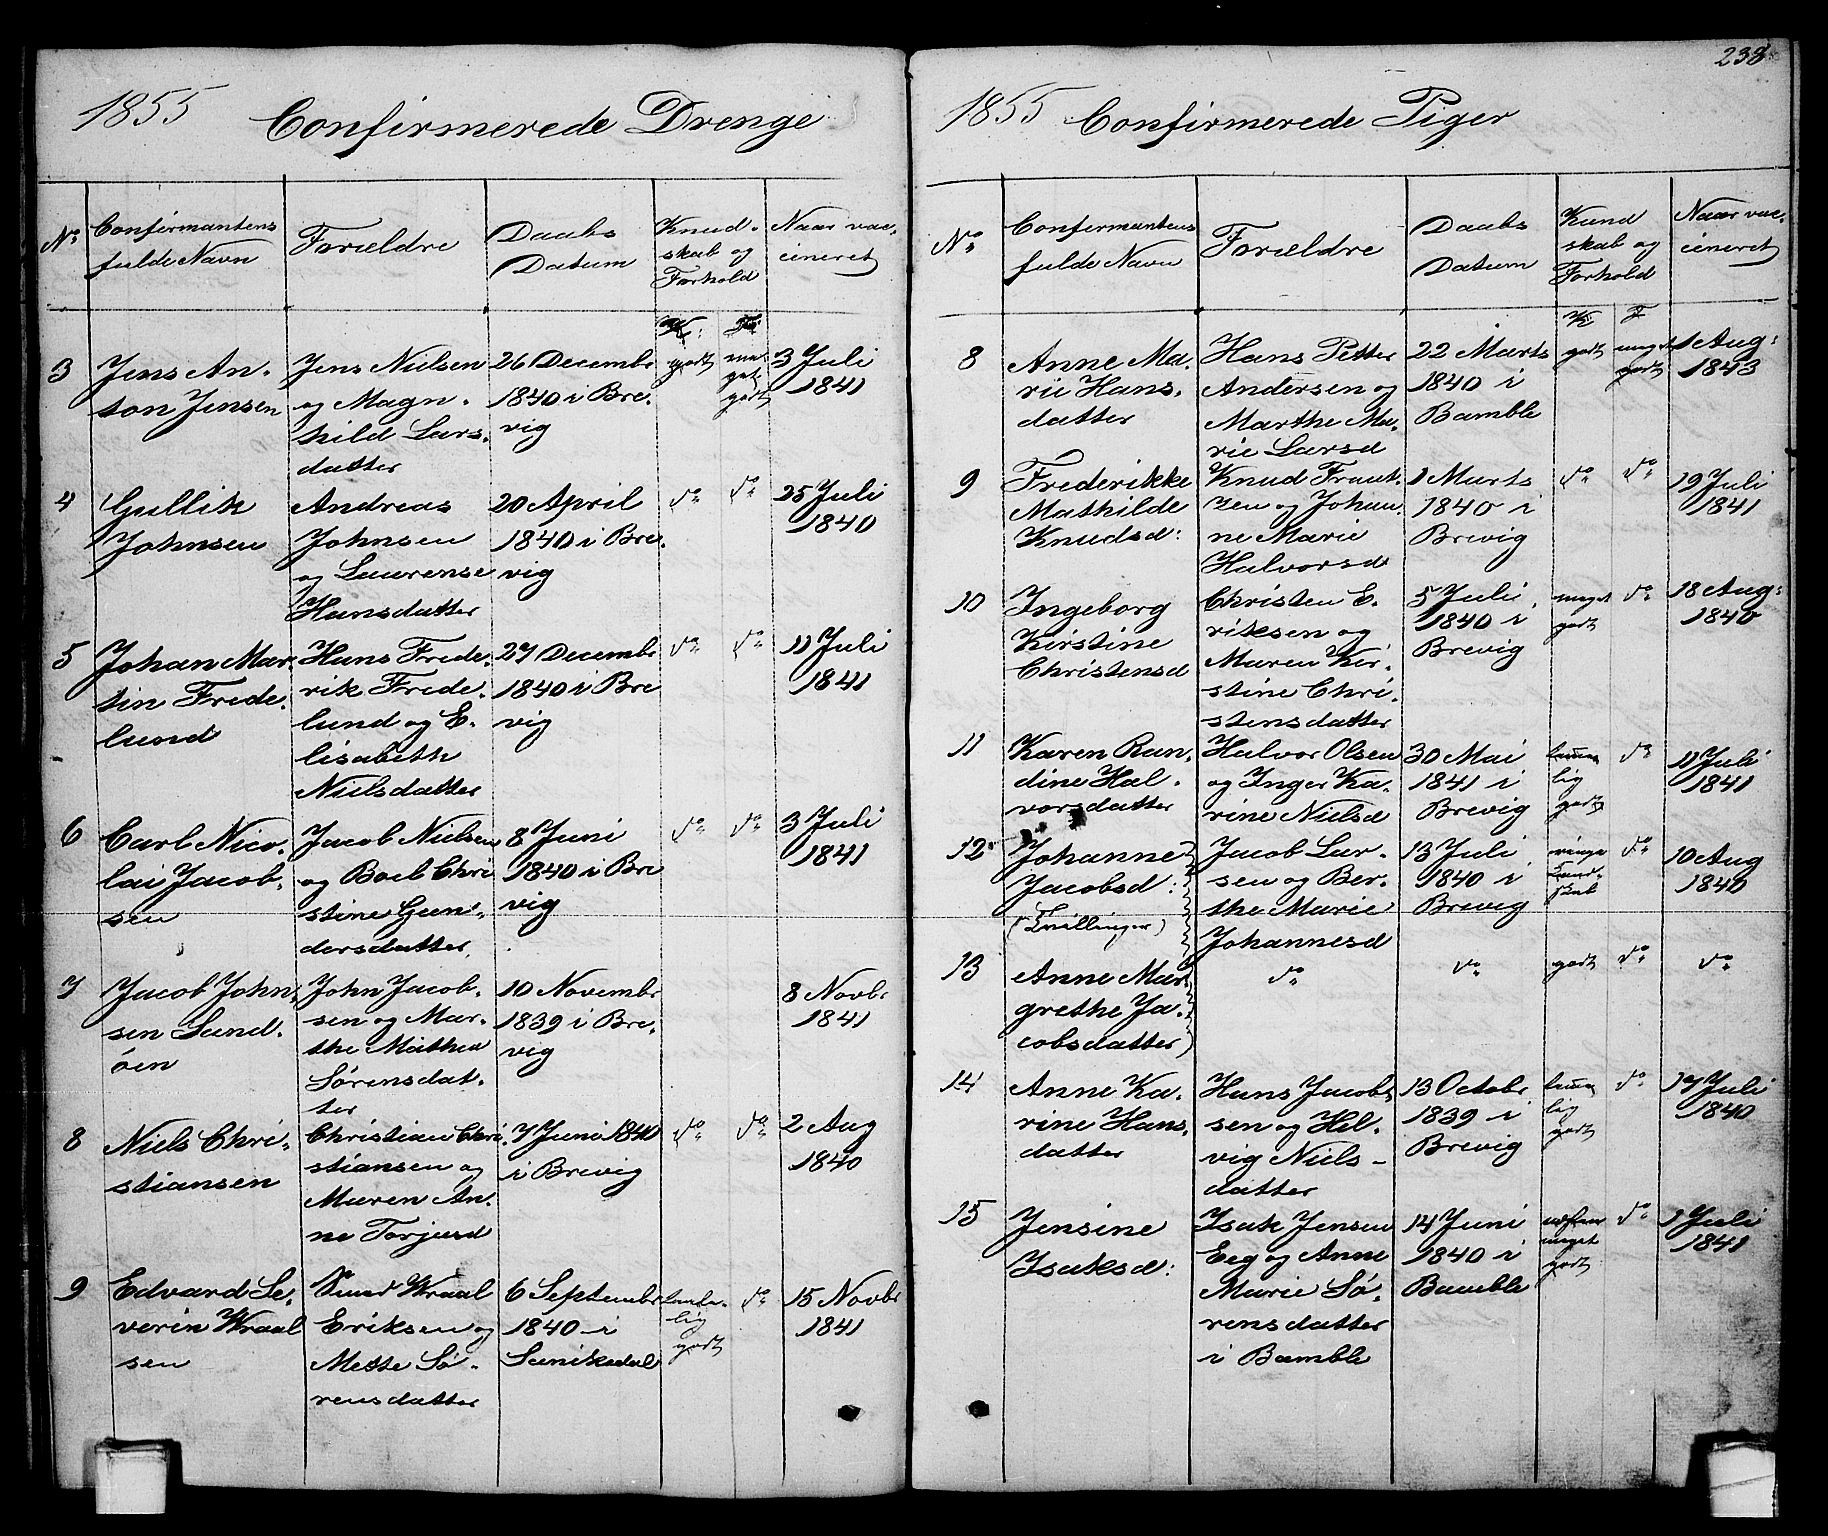 1855 Confirmerede Drenge
No
Confirmantens
fulde Navn
Forældre
Daabs
Datum
Kund-
skab og
Forhold
Naar vac-
cineret
K: F
3
Jens An-
ton Jensen
Jens Nielsen
og Magn-
hild Lars-
datter
26 Decembr
1840 i Bre-
vig
godt
me-
get
godt
3 Juli
1841
4
Gullik
Johnsen
Andreas
Johnsen
og Laurense
Hansdatter
20 April
1840 i Bre-
vig
do
do
25 Juli
1840
5
Johan Mar-
tin Frede-
lund
Hans Frede-
rik Frede-
lund og E-
lisabeth
Nielsdatter
27 Decembr
1840 i Bre
vig
do
do
11 Juli
1841
6
Carl Nico-
lai Jacob-
sen
Jacob Nielsen
og Boel Chri
stine Gun-
dersdatter
8 Juni
1840 i Bre
vig
do
do
3 Juli
1841
7
Jacob John-
sen Sund-
öen
John Jacob-
sen og Mar-
the Mathea
Sörensdat-
ter
10 Novembr
1839 i Bre-
vig
8 Novbr
1841
8
Niels Chri-
stiansen
Christian Chri-
stiansen og
Maren An-
ne Torjusd
7 Juni 1840
i Brevig
do
do
2 Aug
1840
9
Edvard Se-
verin Wraal
sen
Wraal
Eriksen og
Mette Sö-
rensdatter
6 Septembr
1840 i
Sanikedal
lig
godt
do
15 Novbr
1841
238
1855 Confirmerede Piger
No
Confirmantens
fulde Navn
Forældre
Daabs
Datum
Kund
skab og
Forhold
Naar vac-
cineret
K F
8
Anne Ma-
rie Hans-
datter
Hans Petter
Andersen og
Marthe Ma-
rie Larsd
22 Marts
1840 i
Bamble
godt
meget
godt
1 Aug:
1843
9
Frederikke
Mathilde
Knudsd:
Knud Frant-
zen og Johan-
ne Marie
Halvorsd
1 Marts
1840 i
Brevig
do
do
19 Juli
1841
10
Ingeborg
Kirstine
Christensd
Christen E-
riksen og
Maren Kir-
stine Chri-
stensdatter
5 Juli
1840 i
Brevig
meget
godt
do
18 Aug:
1840
11
Karen Ran-
dine Hal-
vorsdatter
Halvor Olsen
og Inger Ka-
rine Nielsd
30 Mai
1841 i
Brevig
temme
lig
godt
do
11 Juli
1841
12
Johanne
Jacobsd:
(Tvillinger)
Jacob Lar-
sen og Ber-
the Marie
Johannesd
13 Juli
1840 i
Brevig
ringe
Kund-
skab
do
10 Aug
1840
13
Anne Mar
grethe Ja-
cobsdatter
do
do
godt
do
do
14
Anne Ka-
rine Hans-
datter
Hans Jacob-
sen og Hel-
vig Niels-
datter
13 Octobr
1839 i
Brevig
temme
lig
godt
do
17 Juli
1840
15
Jensine
Isaksd:
Isak Jensen
Eeg og Anne
Marie Sö-
rensdatter
i Bamble
14 Juni
1840 i
Bamble
meget
godt
do
1 Juli
1841